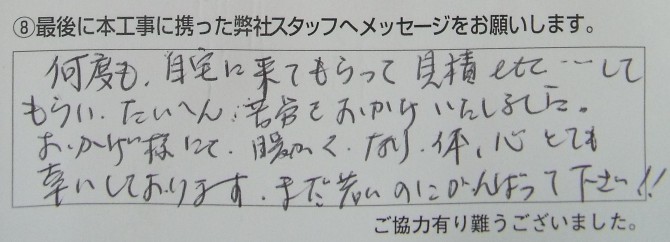 ⑧最後に本工事に携った弊社スタッフへメッセージをお願いします。
何度も、自宅に来てもらって見積etc…して
もらい、たいへん、苦労をおかけいたしました。
おかげ様にて、暖かくなり、体、心とても
幸いしております。まだ若いのにがんばって下さい!!
ご協力有り難うございました。